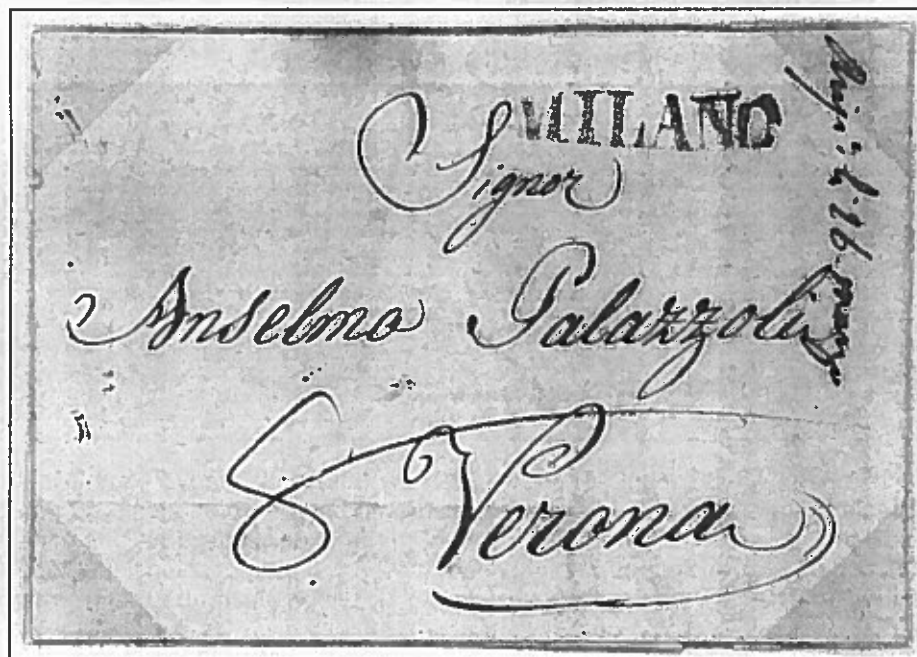 MILANO
Signor
Anselmo Palazzoli
8 Verona